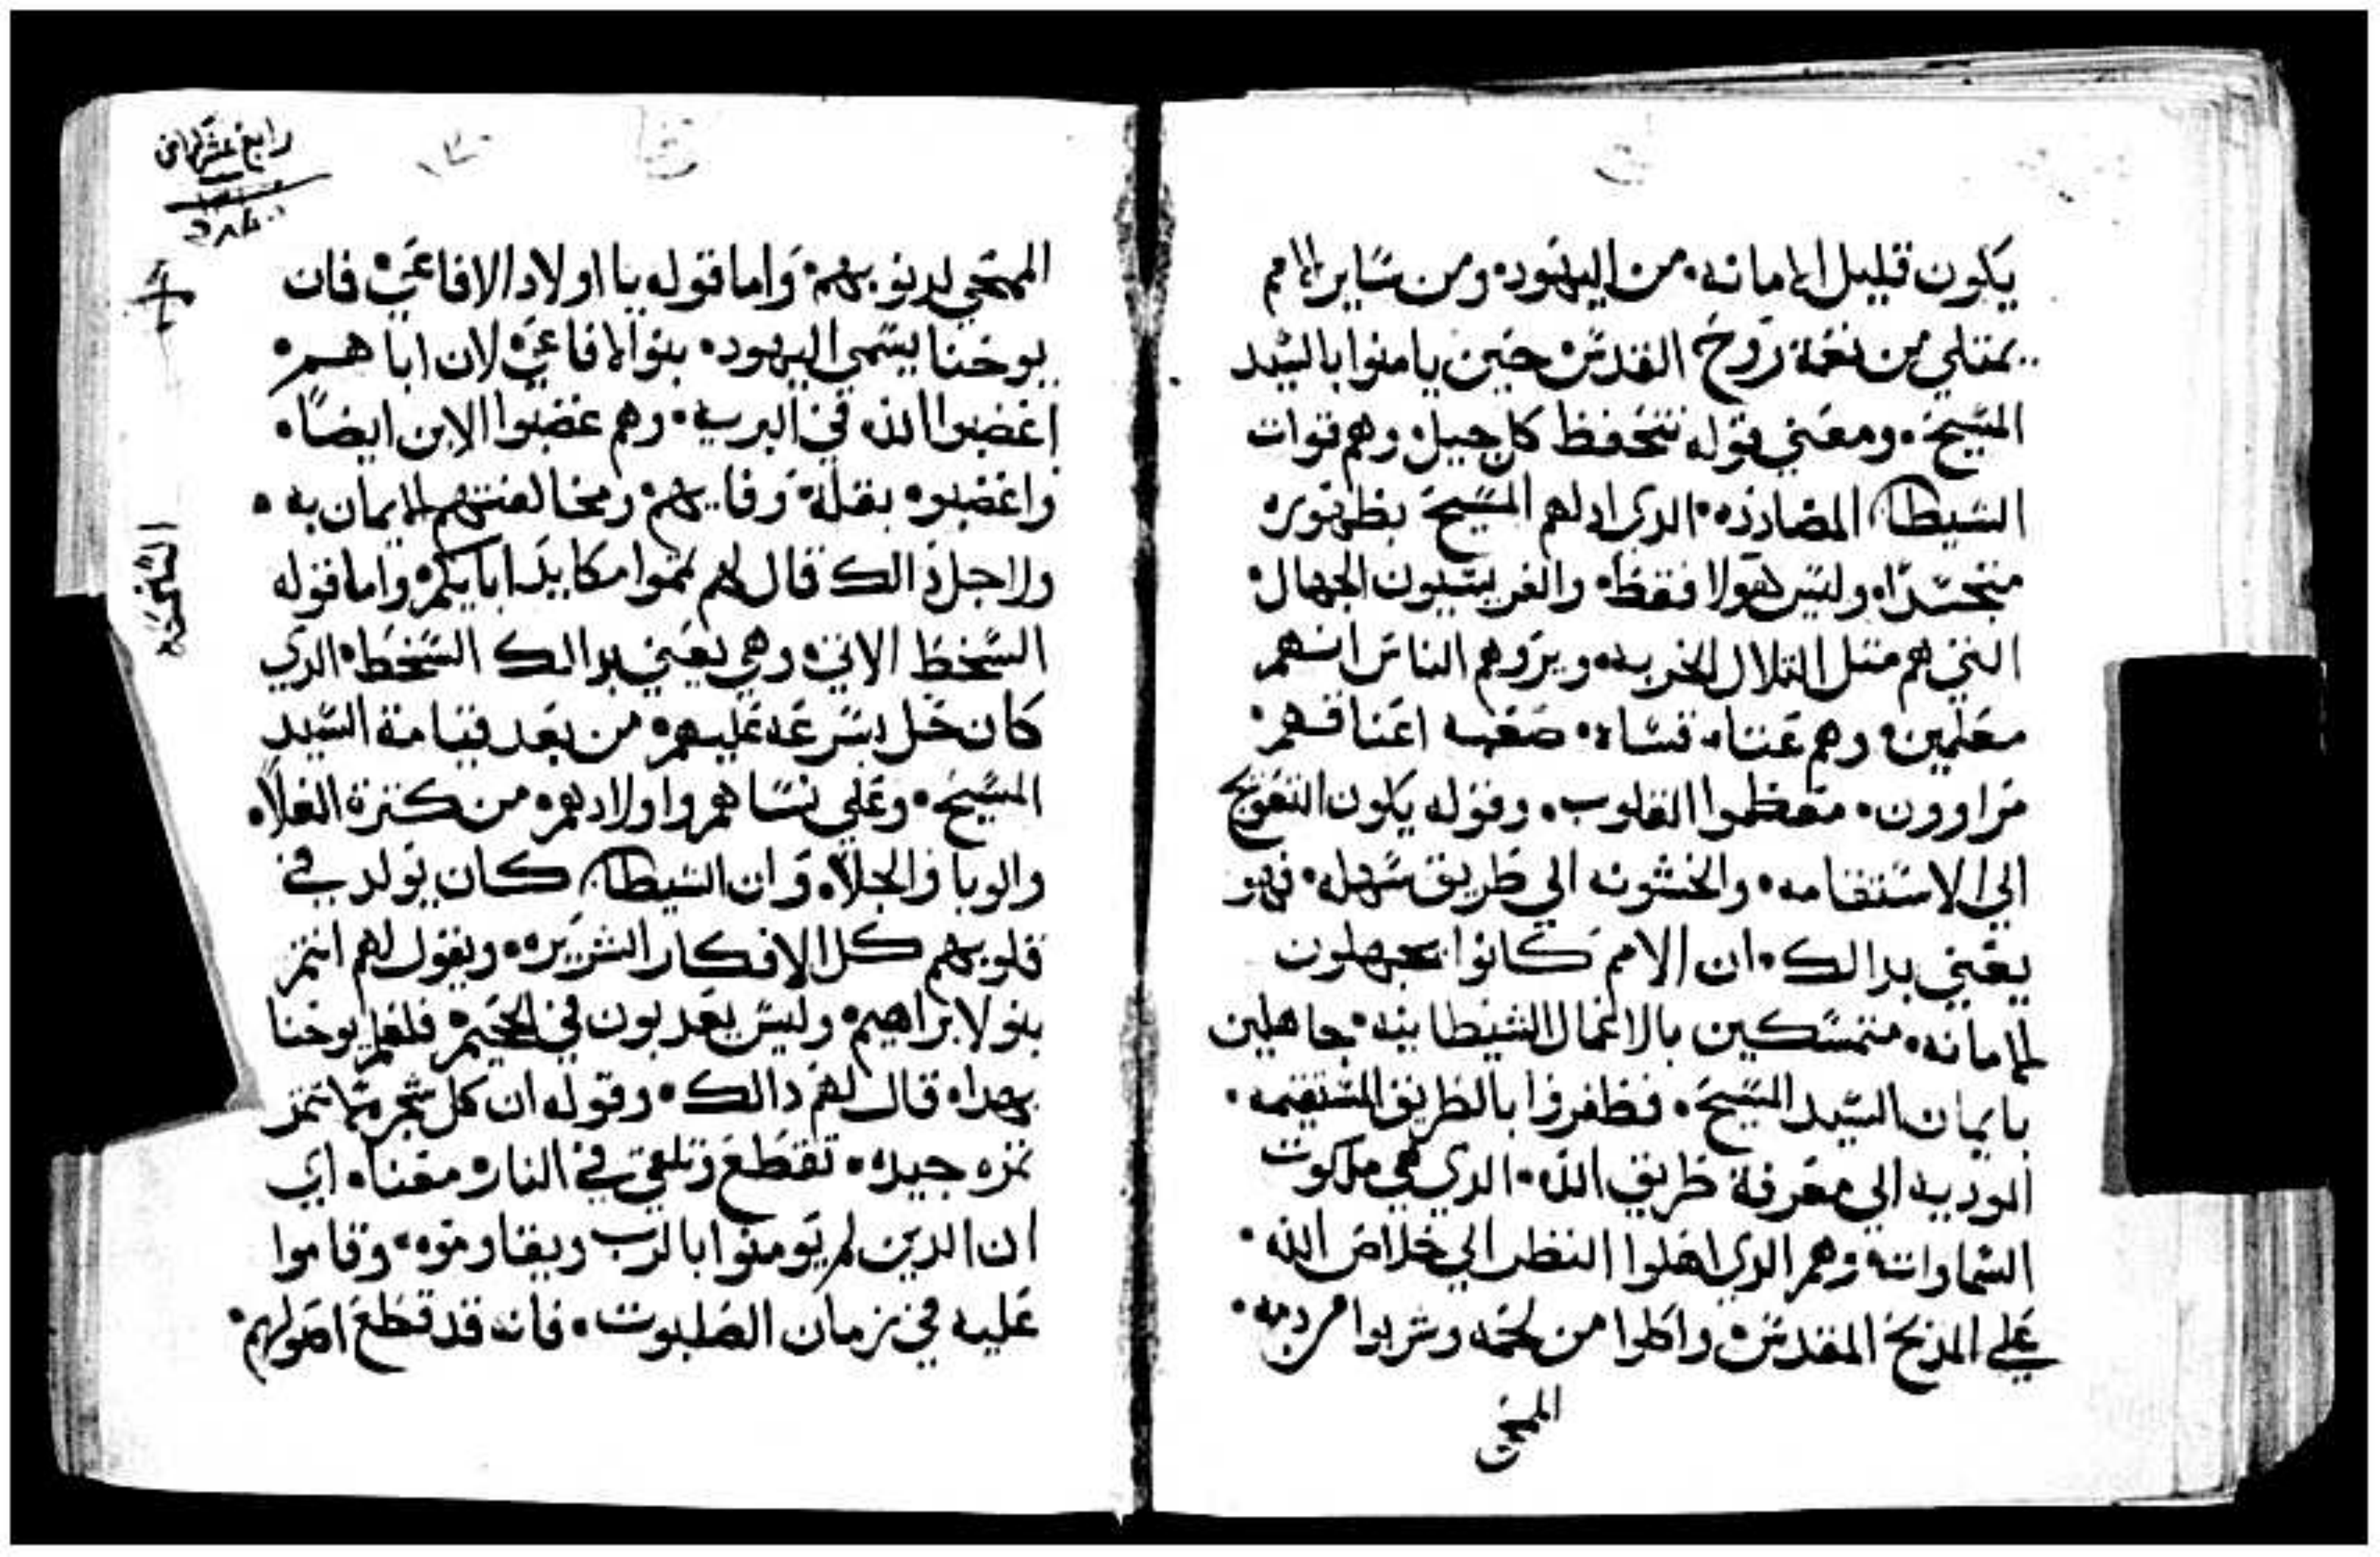 يكون قليل الامانه من اليهود ومن ساير الامم
يمتلي من نعمة روح القدس حين يامنوا بالسيد
المسيح ومعني قوله تتحفظ كل جبل وهم قوات
الشيطان المضادده الدي ادلهم المسيح بظهوره
متجسدا وليس هولا فقط والفريسيون الجهال
التي هم متل التلال الخربه ويروهم الناس انهم
معلمين وهم عتاه قساه صعبه اعناقهم
مراوون متعظموا القلوب وقوله يكون التعويج
الي الاستقامه والخشونه الي طريق سهله فهو
يعني بدالك ان الامم كانوا يجهلون
الامانه متمسكين بالاعمال الشيطانيه جاهلين
بايمان السيد المسيح فظفروا بالطريق المستقيمه
الموديه الي معرفة طريق الله الدي هي ملكوت
السماوات وهم الدي اهلوا النظر الي خلاص الله
علي المدبح المقدس واكلوا من لحمه وشربوا من دمه
الممحي
رابع عشر
الممحي لدنوبهم واما قوله يا اولاد الافاعي فان
يوحنا يسمي اليهود بنوا الافاعي لان اباهم
اغضبوا الله في البريه وهم غضبوا الابن ايضا
واغضبوه بقلة وفايهم ومخالفتهم الايمان به
ولاجل دالك قال لهم تمموا مكايد ابايكم واما قوله
السخط الاتي وهي يعني بدالك السخط الدي
كان حل بسرعه عليهم من بعد قيامة السيد
المسيح وعلي نساهم واولادهم من كترة الغلاء
والوبا والجلاء وان الشيطان كان يولد في
قلوبهم كل الافكار الشريره ويقول لهم انتم
بنو لابراهيم وليس يعدبون في الجحيم فلعلم يوحنا
بهدا قال لهم دالك وقوله ان كل شجره ما تتمر
تمره جيده تقطع وتلقي في النار ومعناه اي
ان الدين لم يومنوا بالرب ويقاوموه وقاموا
عليه في زمان الصلبوت فانه قد قطع اصولهم